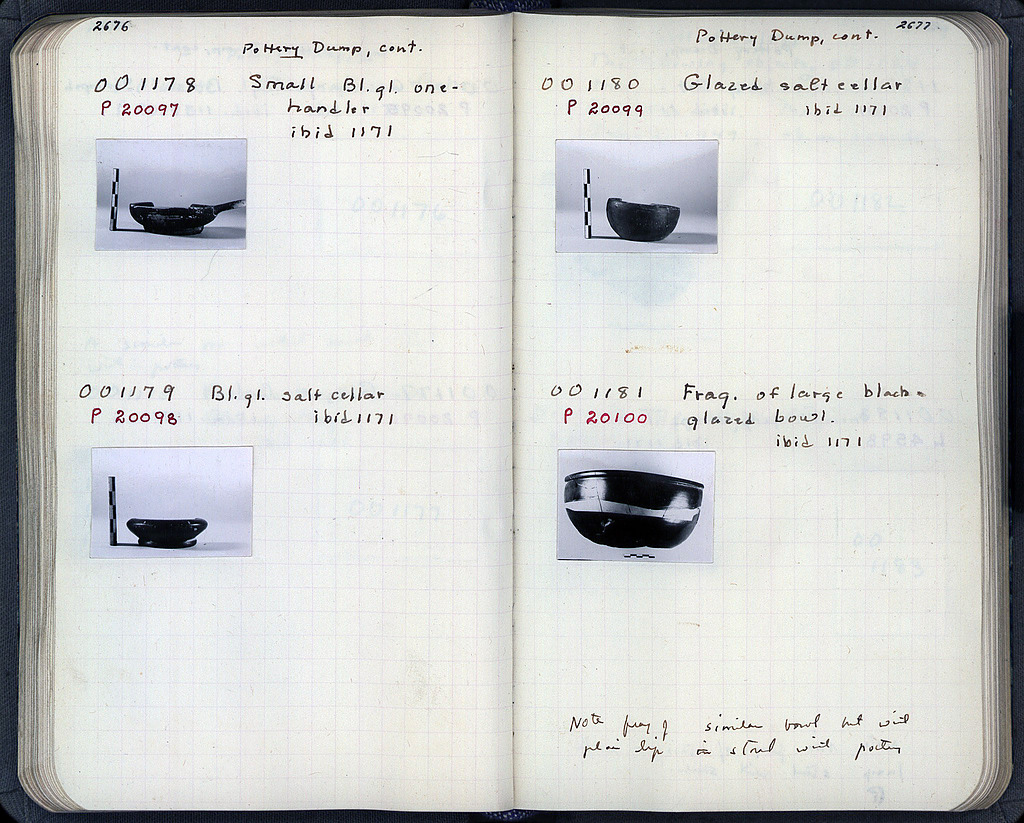 2676
Pottery Dump, cont.
OO 1178 Small Bl. gl. one-
P 20097 handler
ibid 1171
OO 1179 Bl. gl. salt cellar
P 20098 ibid 1171
2677
Pottery Dump, cont.
OO 1180 Glazed salt cellar
P 20099 ibid 1171
OO 1181 Frag. of large black-
P 20100 glazed bowl.
ibid 1171
Note frag of similar bowl but with
plain lip in stred with pottery